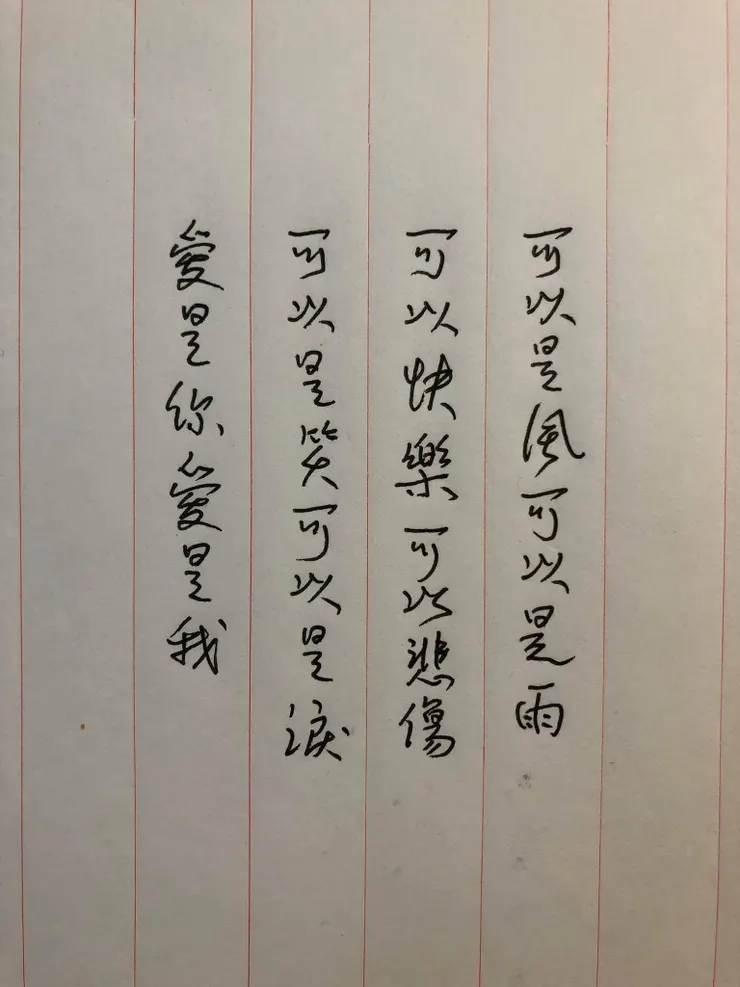 可以是風可以是雨
可以快樂可以悲傷
可以是笑可以是淚
愛是你愛是我